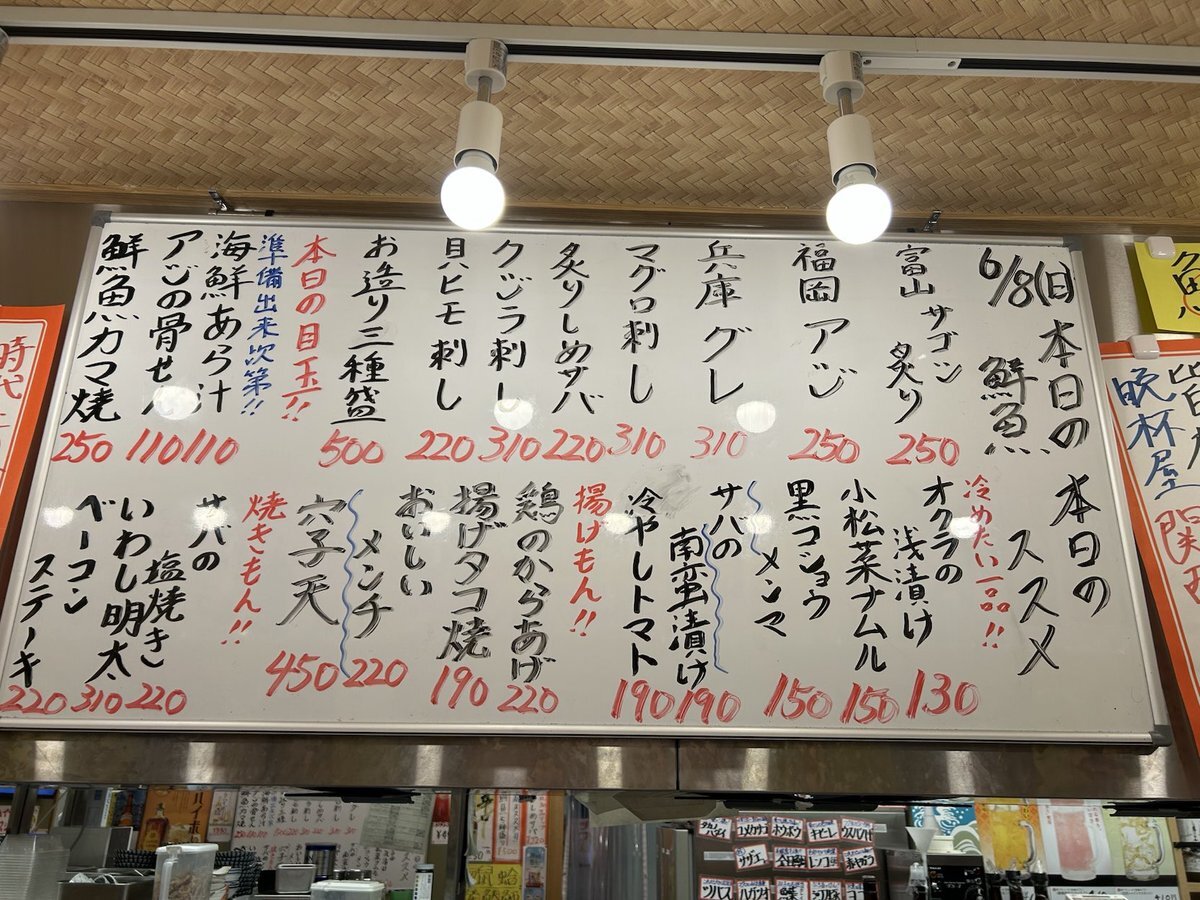 6/8(日) 本日の
鮮魚
富山 サゴシ
炙り
250
福岡 アジ
250
兵庫 グレ
310
マグロ刺し
310
炙りしめサバ
220
クジラ刺し
310
貝ヒモ刺し
220
お造り三種盛
500
本日の目玉!!
準備出来次第!!
海鮮あら汁
110
アジの骨せん
110
鮮魚カマ焼
250
本日の
ススメ
冷めたい一品!!
オクラの
浅漬け
130
小松菜ナムル
150
黒コショウ
メンマ
150
サバの
南蛮漬け
190
冷やしトマト
190
揚げもん!!
鶏のからあげ
220
揚げタコ焼
190
おいしい
メンチ
220
穴子天
450
焼きもん!!
サバの
塩焼き
220
いわし明太
310
ベーコン
ステーキ
220
晩杯屋
時代